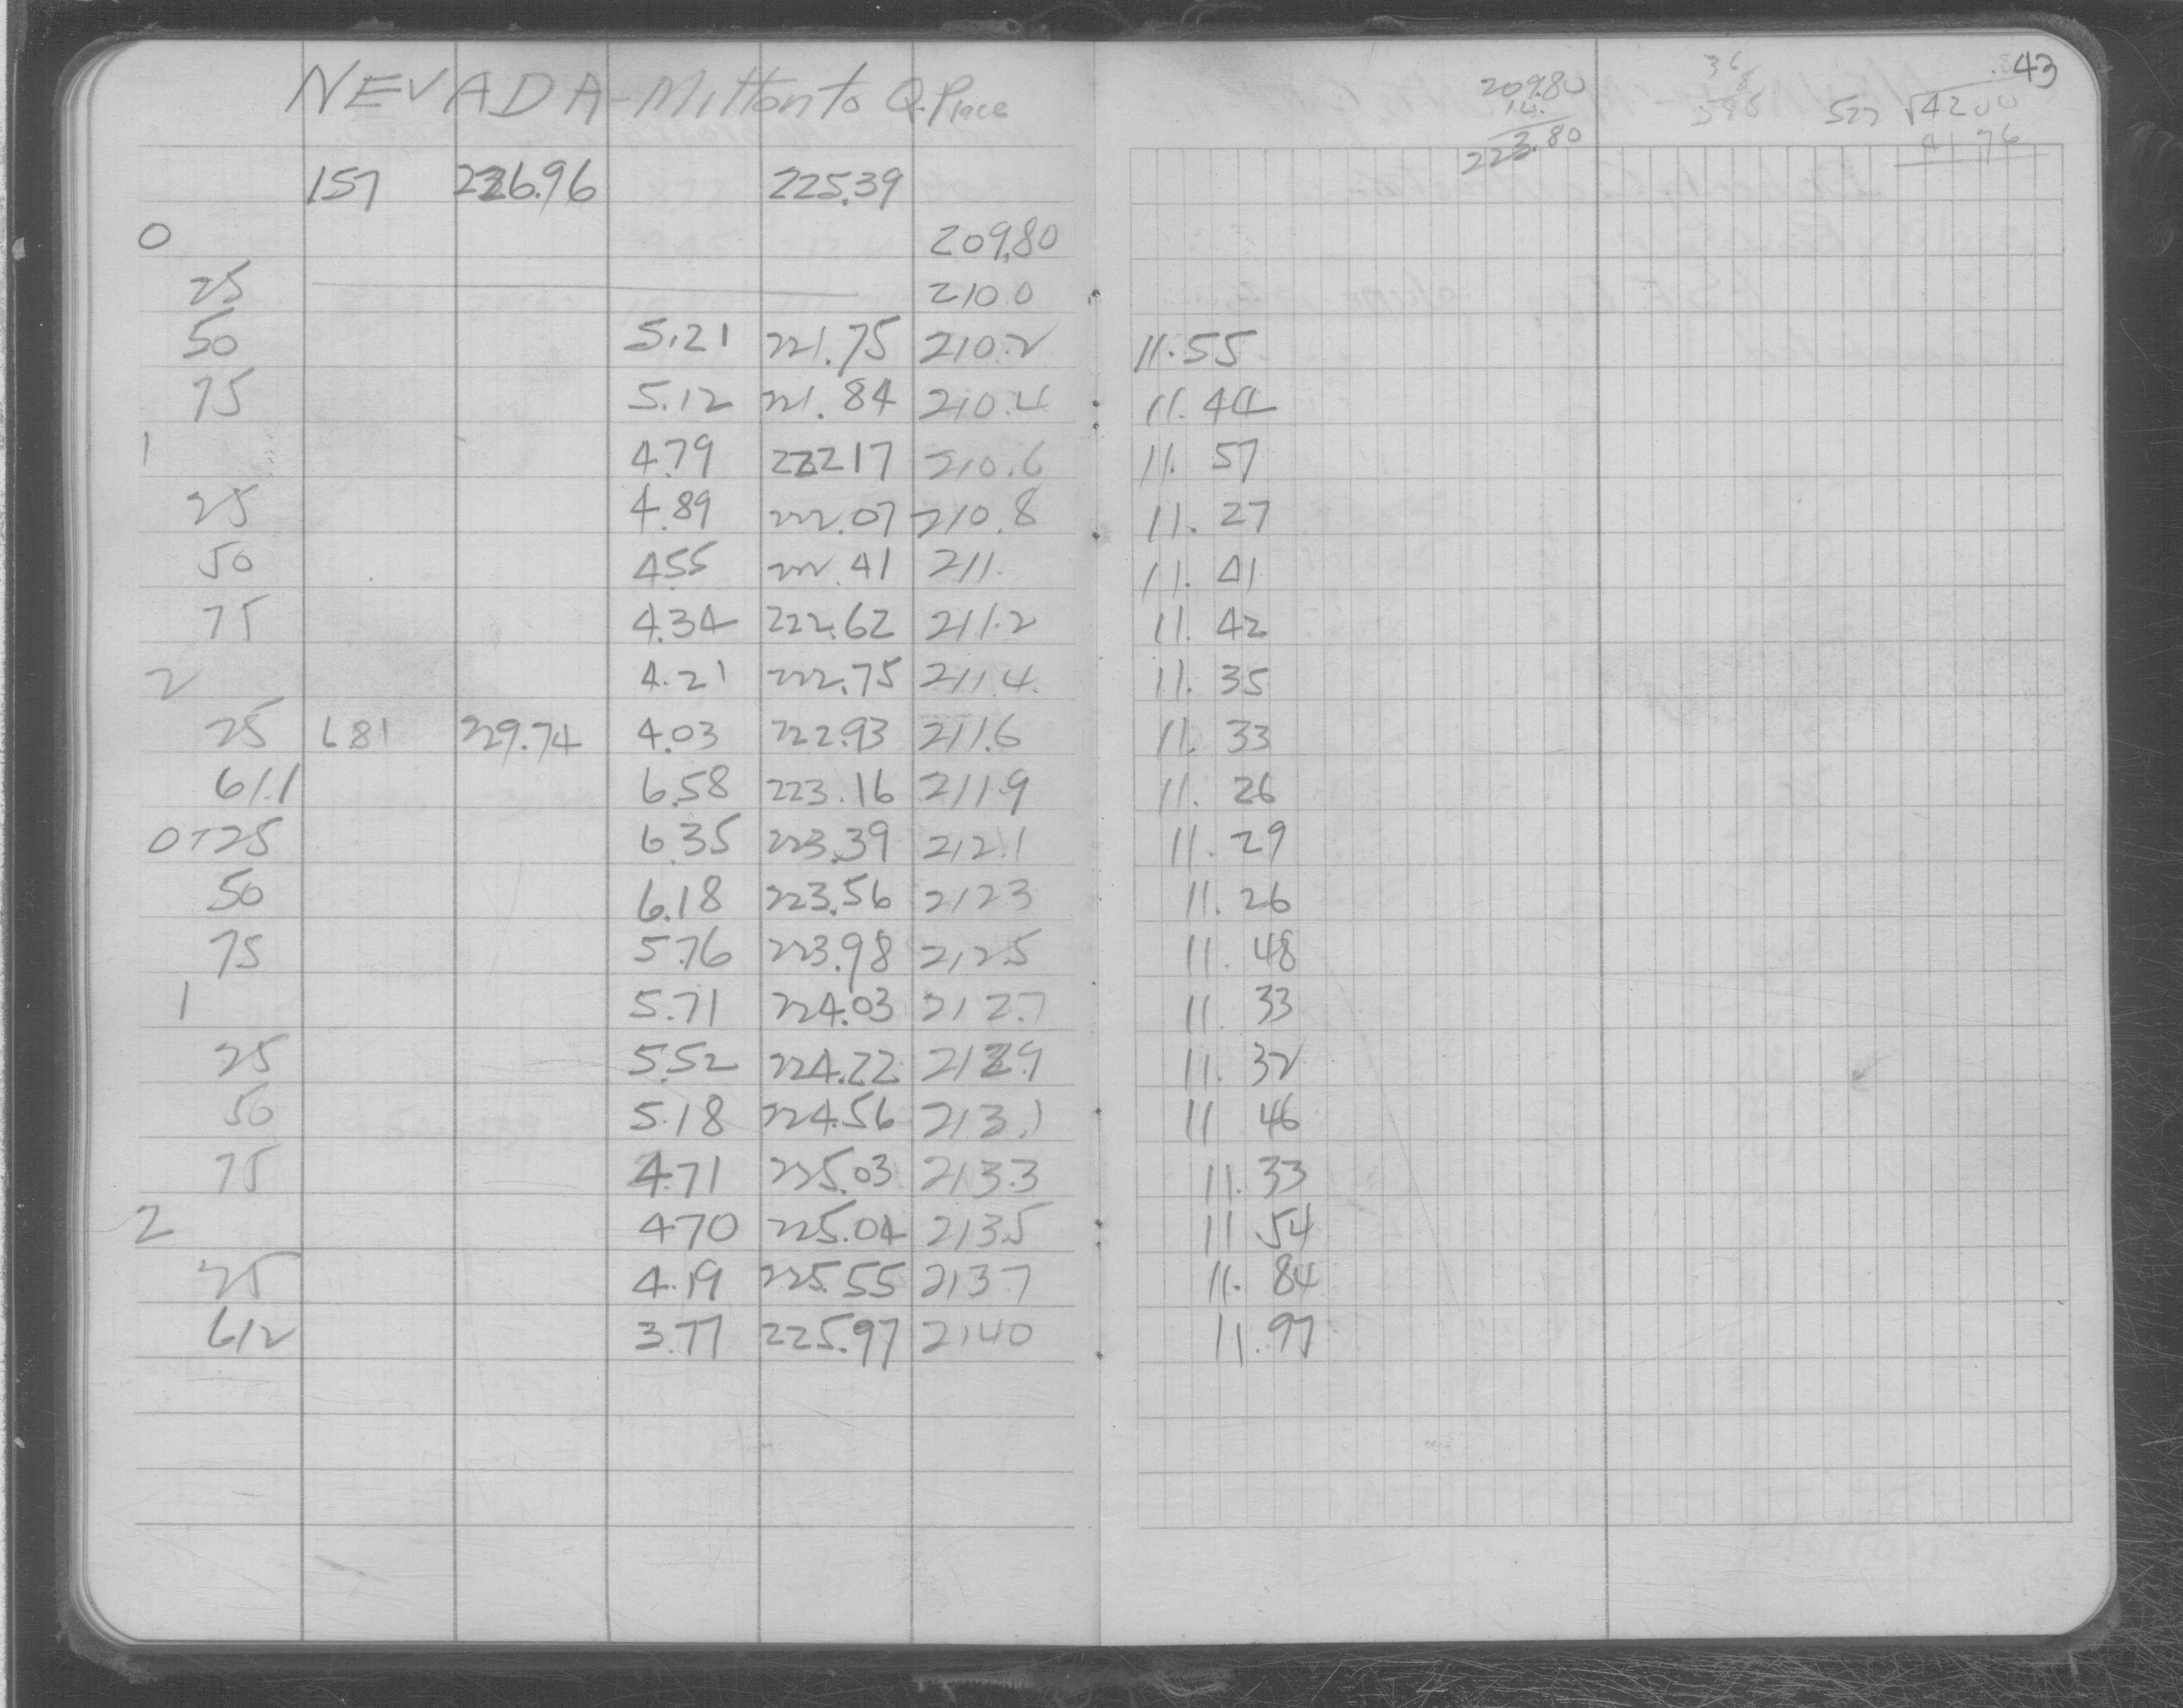 NEVADA - Mitton to Q. Place
209.80
14.
223.80
36
8
527 √4200
4176
43
157 226.96 225.39
0 209.80
25 210.0
50 5.21 221.75 210.2 11.55
75 5.12 221.84 210.4 11.44
1 4.79 222.17 210.6 11.57
25 4.89 222.07 210.8 11.27
50 455 222.41 211. 11.41
75 4.34 222.62 211.2 11.42
2 4.21 222.75 211.4. 11.35
25 681 229.74 4.03 222.93 211.6 11.33
61.1 6.58 223.16 211.9 11.26
0+25 6.35 223.39 212.1 11.29
50 6.18 223.56 2123 11.26
75 5.76 223.98 212.5 11.48
1 5.71 224.03 212.7 11.33
25 5.52 224.22 212.9 11.32
50 5.18 224.56 213.1 11 46
75 4.71 225.03 213.3 11.33
2 470 225.04 213.5 11 54
25 4.19 225.55 2137 11.84
612 3.77 225.97 2140 11.97